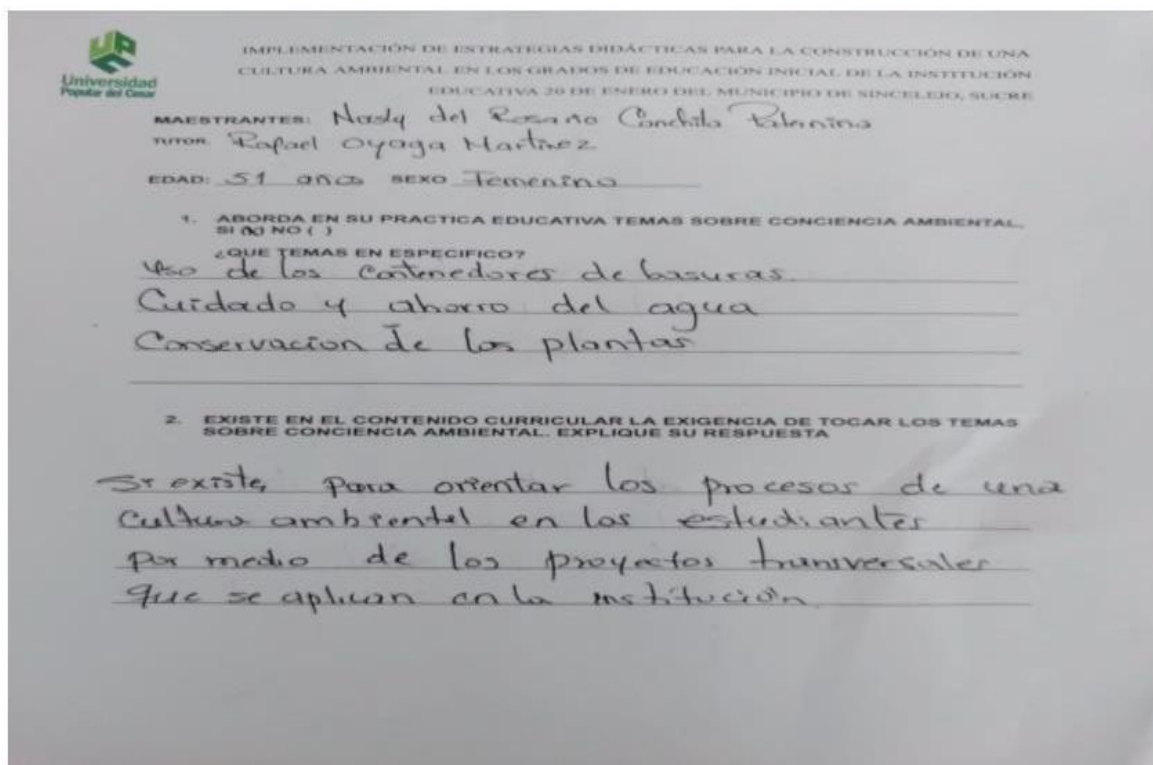 Universidad
Popular del Cesar
IMPLEMENTACIÓN DE ESTRATEGIAS DIDÁCTICAS PARA LA CONSTRUCCIÓN DE UNA
CULTURA AMBIENTAL EN LOS GRADOS DE EDUCACIÓN INICIAL DE LA INSTITUCIÓN
EDUCATIVA 20 DE ENERO DEL MUNICIPIO DE SINCELEJO, SUCRE
MAESTRANTES: del Rosario Conchita Paternina
TUTOR. Rafael Oyaga Martinez
EDAD: 51 años SEXO Femenino
1. ABORDA EN SU PRACTICA EDUCATIVA TEMAS SOBRE CONCIENCIA AMBIENTAL.
SI (X) NO ( )
¿QUE TEMAS EN ESPECIFICO?
Uso de los contenedores de basuras.
Cuidado y ahorro del agua
Conservacion de las plantas
2. EXISTE EN EL CONTENIDO CURRICULAR LA EXIGENCIA DE TOCAR LOS TEMAS
SOBRE CONCIENCIA AMBIENTAL. EXPLIQUE SU RESPUESTA
Si existe, para orientar los procesos de una
cultura ambiental en los estudiantes
por medio de los proyectos transversales
que se aplican en la institución